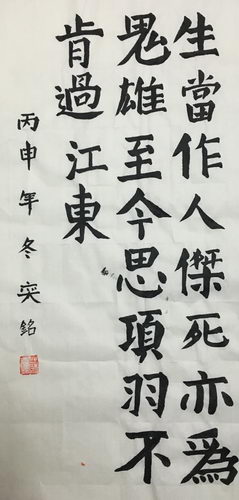 生當作人傑死亦為
鬼雄至今思項羽不
肯過江東
丙申年冬奕銘